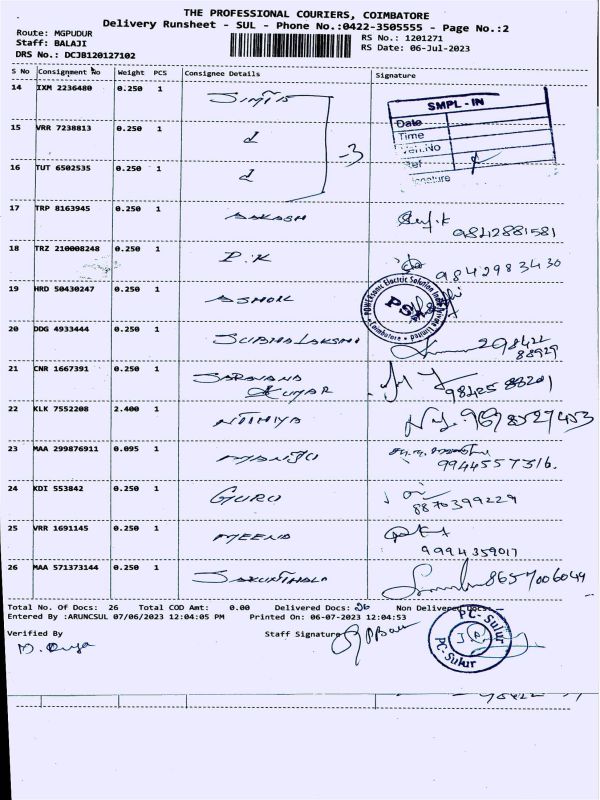 THE PROFESSIONAL COURIERS, COIMBATORE
Delivery Runsheet - SUL - Phone No.:0422-3505555 - Page No.:2
Route: MGPUDUR RS No.: 1201271
Staff: BALAJI RS Date: 06-Jul-2023
DRS No.: DCJB120127102
S No Consignment No Weight PCS Consignee Details Signature
14 IXM 2236480 0.250 1
SMPL - IN
Date
Time
Veh.No
15 VRR 7238813 0.250 1
-3
16 TUT 6502535 0.250 1
17 TRP 8163945 0.250 1 AAKASH
9842881581
18 TRZ 210008248 0.250 1 P.K
9842983430
19 HRD 50430247 0.250 1 ASHOK
POWERsonic Electric Solution India Private Limited
Coimbatore
PS
20 DDG 4933444 0.250 1 SUBHALAKSMI
298422
88929
21 CNR 1667391 0.250 1 SARAVANA
KUMAR
9842588201
22 KLK 7552208 2.400 1 NITHIYA
9678527453
23 MAA 299876911 0.095 1 MANJU
9944557316.
24 KDI 553842 0.250 1 GURU
8870399229
25 VRR 1691145 0.250 1 MEENA
9994359017
26 MAA 571373144 0.250 1 SAKUNTHALA
8657006049
Total No. Of Docs: 26 Total COD Amt: 0.00 Delivered Docs: 26 Non Delivered Docs:
Entered By :ARUNCSUL 07/06/2023 12:04:05 PM Printed On: 06-07-2023 12:04:53
Verified By Staff Signature
PC-Sulur
PC-Sulur